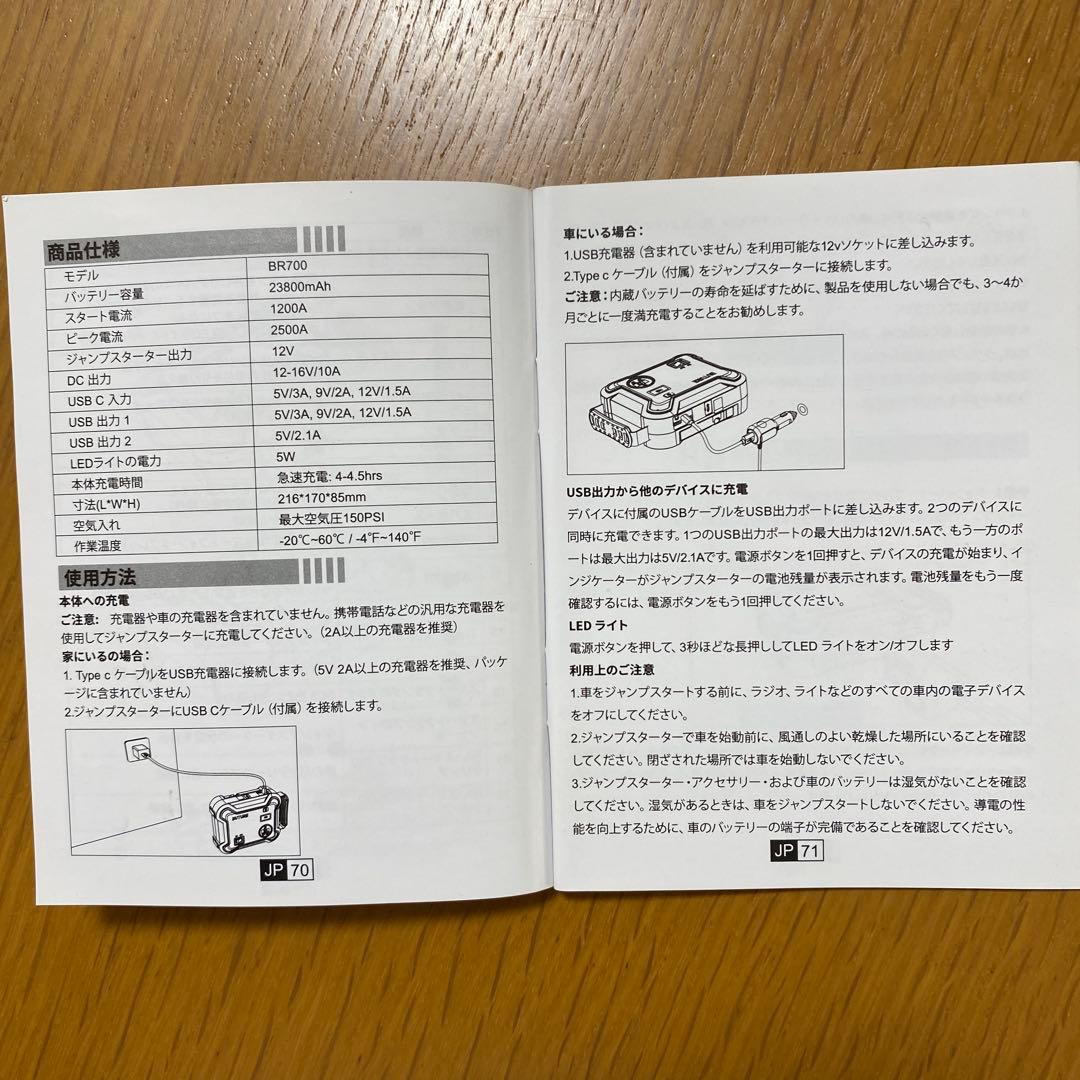 商品仕様
モデル BR700
バッテリー容量 23800mAh
スタート電流 1200A
ピーク電流 2500A
ジャンプスターター出力 12V
DC 出力 12-16V/10A
USB C 入力 5V/3A, 9V/2A, 12V/1.5A
USB 出力 1 5V/3A, 9V/2A, 12V/1.5A
USB 出力 2 5V/2.1A
LEDライトの電力 5W
本体充電時間 急速充電: 4-4.5hrs
寸法(L*W*H) 216*170*85mm
空気入れ 最大空気圧150PSI
作業温度 -20℃~60℃ / -4℉~140℉
使用方法
本体への充電
ご注意: 充電器や車の充電器を含まれていません。携帯電話などの汎用な充電器を
使用してジャンプスターターに充電してください。（2A以上の充電器を推奨）
家にいるの場合：
1. Type c ケーブルをUSB充電器に接続します。（5V 2A以上の充電器を推奨、パッケ
ージに含まれていません）
2.ジャンプスターターにUSB Cケーブル（付属）を接続します。
JP 70
車にいる場合：
1.USB充電器（含まれていません）を利用可能な12vソケットに差し込みます。
2.Type c ケーブル（付属）をジャンプスターターに接続します。
ご注意：内蔵バッテリーの寿命を延ばすために、製品を使用しない場合でも、3〜4か
月ごとに一度満充電することをお勧めします。
USB出力から他のデバイスに充電
デバイスに付属のUSBケーブルをUSB出力ポートに差し込みます。2つのデバイスに
同時に充電できます。1つのUSB出力ポートの最大出力は12V/1.5Aで、もう一方のポ
ートは最大出力は5V/2.1Aです。電源ボタンを1回押すと、デバイスの充電が始まり、イ
ンジケーターがジャンプスターターの電池残量が表示されます。電池残量をもう一度
確認するには、電源ボタンをもう1回押してください。
LED ライト
電源ボタンを押して、3秒ほどな長押ししてLED ライトをオン/オフします
利用上のご注意
1.車をジャンプスタートする前に、ラジオ、ライトなどのすべての車内の電子デバイス
をオフにしてください。
2.ジャンプスターターで車を始動前に、風通しのよい乾燥した場所にいることを確認
してください。閉ざされた場所では車を始動しないでください。
3.ジャンプスターター・アクセサリー・および車のバッテリーは湿気がないことを確認
してください。湿気があるときは、車をジャンプスタートしないでください。導電の性
能を向上するために、車のバッテリーの端子が完備であることを確認してください。
JP 71